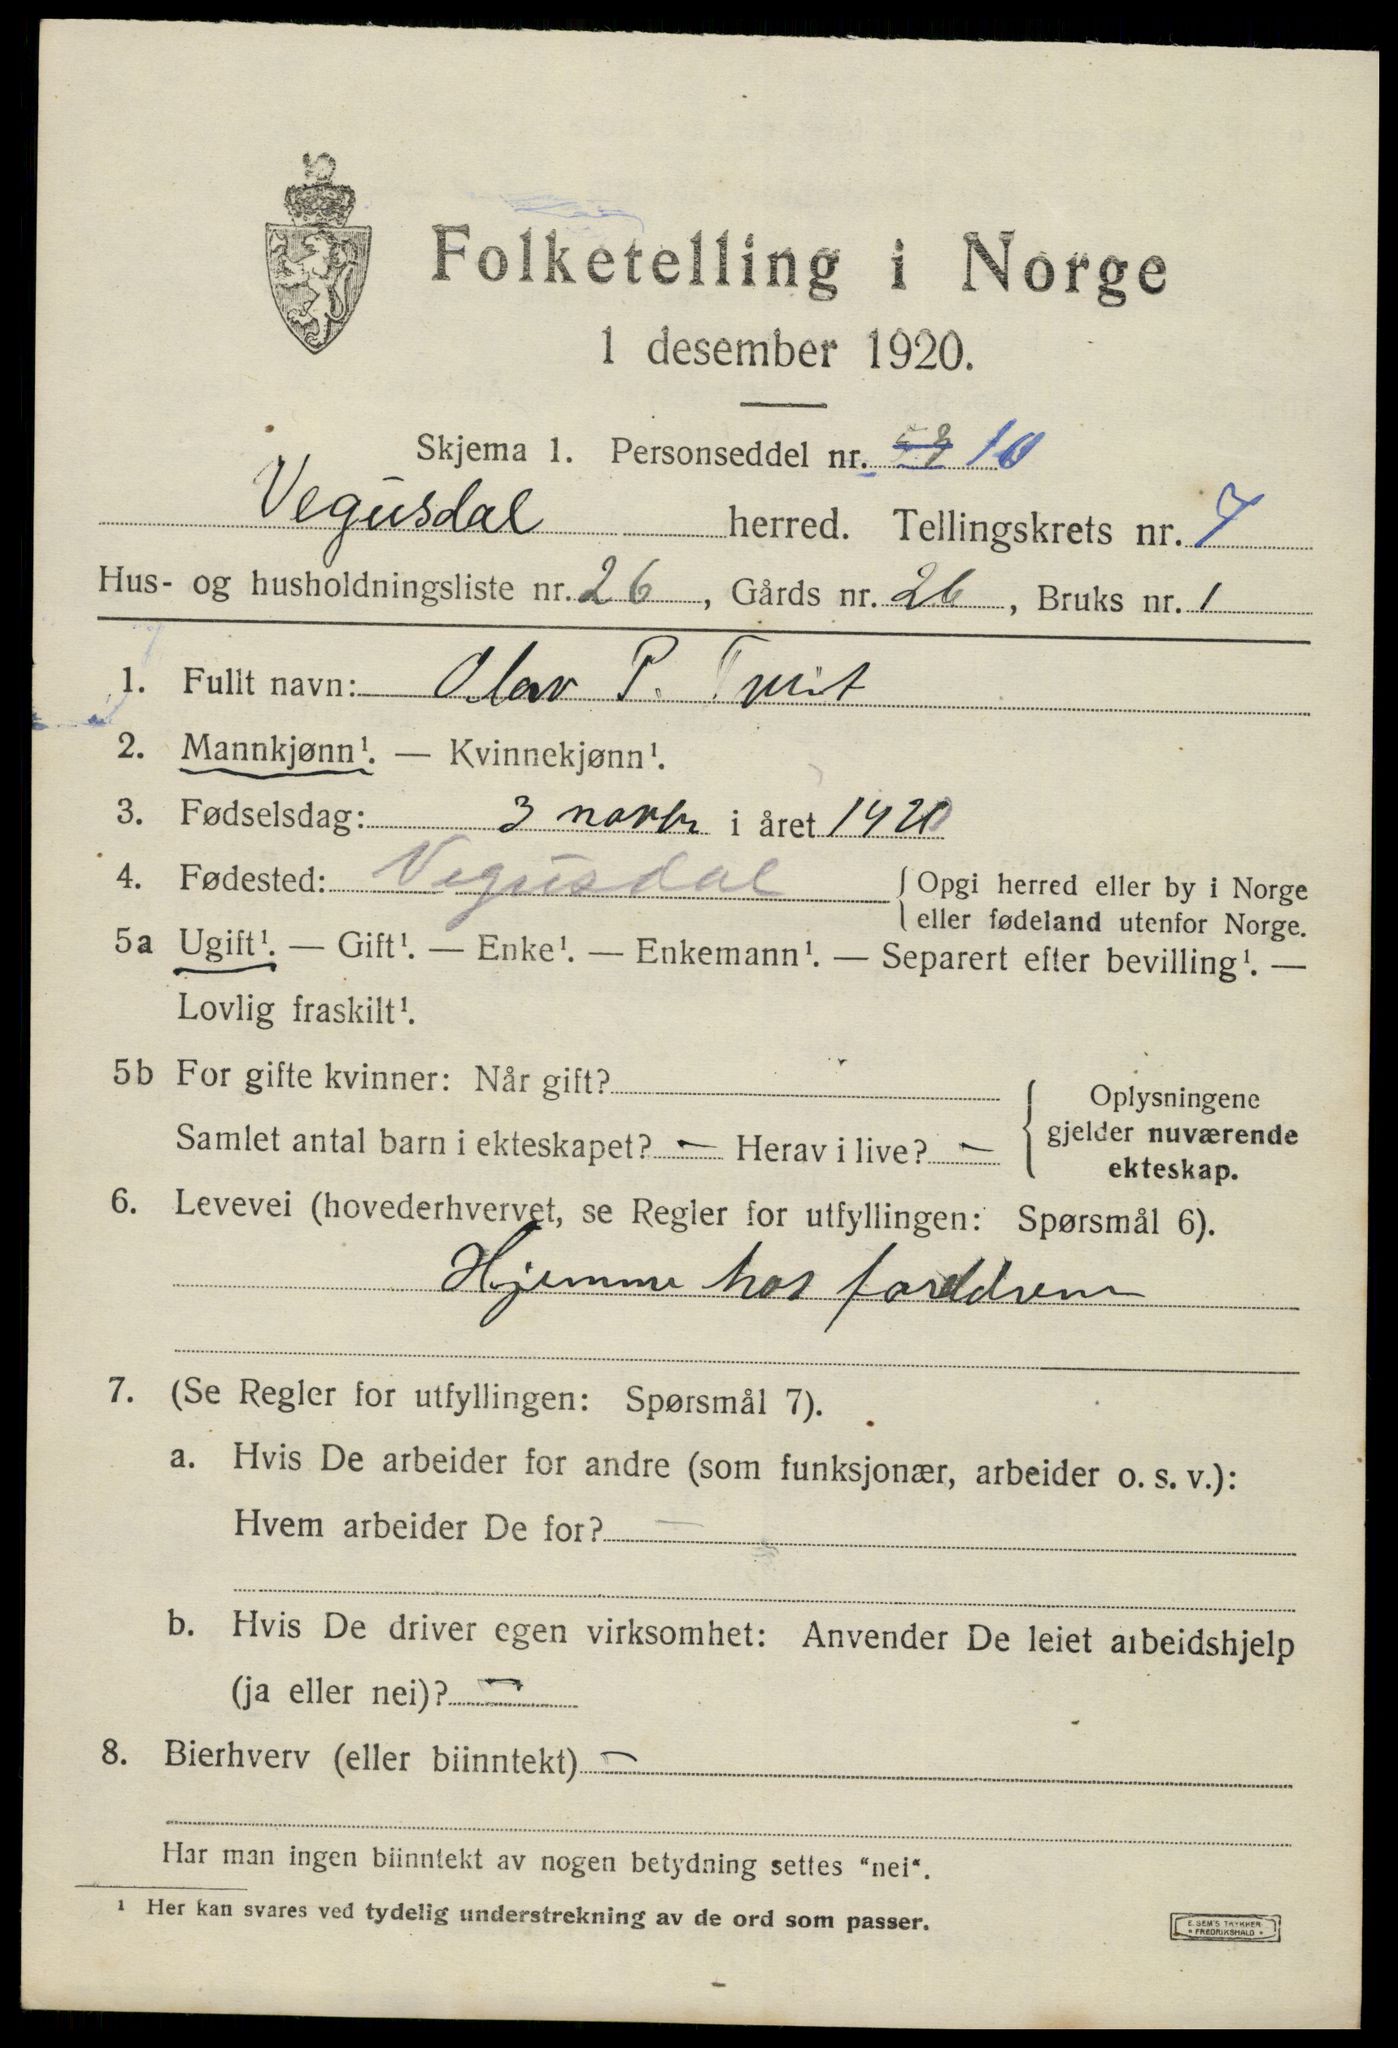 Folketelling i Norge
1 desember 1920.
Skjema 1. Personseddel nr. 10
Vegusdal herred. Tellingskrets nr. 7
Hus- og husholdningsliste nr. 26, Gårds nr. 26, Bruks nr. 1
1. Fullt navn: Olav P. Tveit
2. Mannkjønn¹. — Kvinnekjønn¹.
3. Fødselsdag: 3 novbr i året 1920
4. Fødested: Vegusdal { Opgi herred eller by i Norge
eller fødeland utenfor Norge.
5a Ugift¹. — Gift¹. — Enke¹. — Enkemann¹. — Separert efter bevilling¹. —
Lovlig fraskilt¹.
5b For gifte kvinner: Når gift?
Samlet antal barn i ekteskapet? — Herav i live? —
{ Oplysningene
gjelder nuværende
ekteskap.
6. Levevei (hovederhvervet, se Regler for utfyllingen: Spørsmål 6).
Hjemme hos foreldrene
7. (Se Regler for utfyllingen: Spørsmål 7).
a. Hvis De arbeider for andre (som funksjonær, arbeider o. s. v.):
Hvem arbeider De for? —
b. Hvis De driver egen virksomhet: Anvender De leiet arbeidshjelp
(ja eller nei)? —
8. Bierhverv (eller biinntekt) —
Har man ingen biinntekt av nogen betydning settes "nei".
¹ Her kan svares ved tydelig understrekning av de ord som passer.
E. SEM'S TRYKKERI
* FREDRIKSHALD *